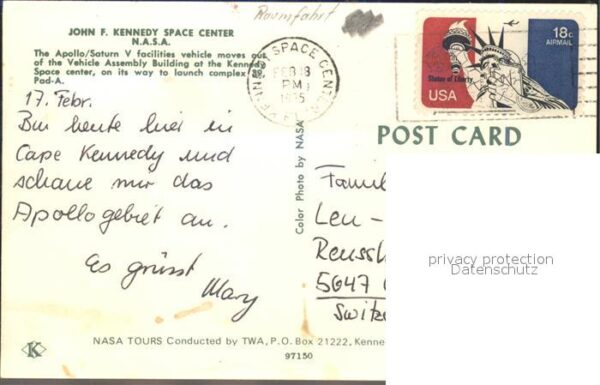 Raumfahrt
JOHN F. KENNEDY SPACE CENTER
N.A.S.A.
The Apollo/Saturn V facilities vehicle moves out
of the Vehicle Assembly Building at the Kennedy
Space center, on its way to launch complex
Pad-A.
17. Febr.
Bin heute hier in
Cape Kennedy und
schaue mir das
Apollogebiet an.
Es grüsst
Mary
KENNEDY SPACE CENTER
FEB 18
PM
1975
18c
AIRMAIL
Statue of Liberty
USA
POST CARD
Color Photo by NASA
Famil
Leu -
Reussh
5647
Switz
privacy protection
Datenschutz
K
NASA TOURS Conducted by TWA, P.O. Box 21222, Kenne
97150